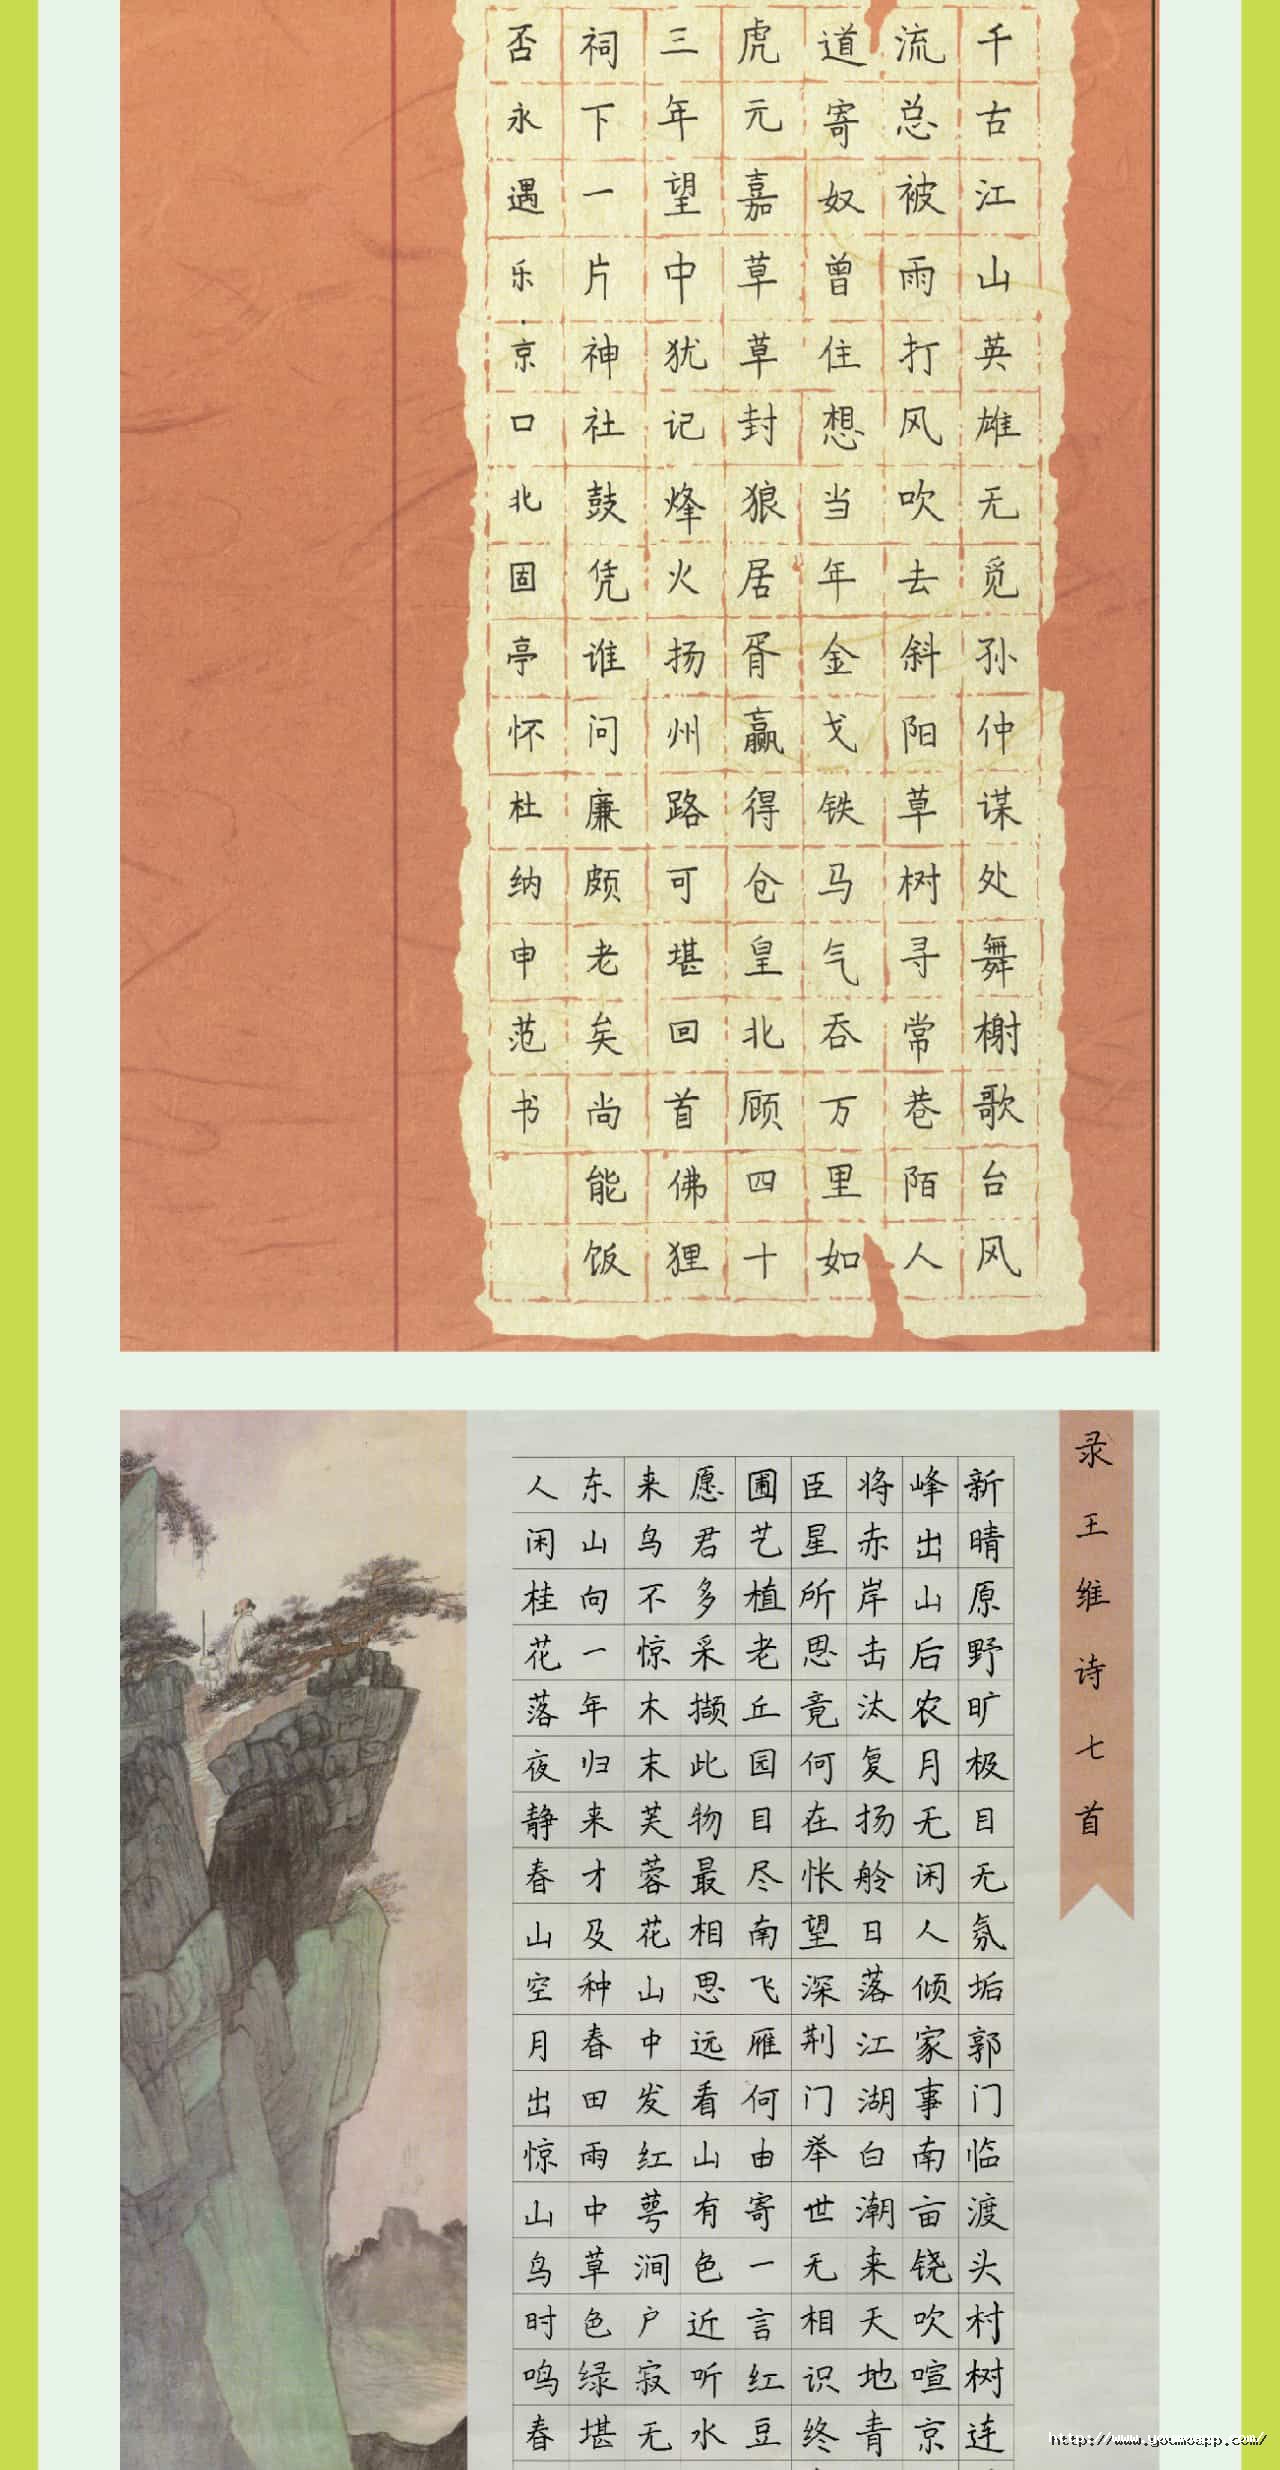 千古江山英雄无觅孙仲谋处舞榭歌台风
流总被雨打风吹去斜阳草树寻常巷陌人
道寄奴曾住想当年金戈铁马气吞万里如
虎元嘉草草封狼居胥赢得仓皇北顾四十
三年望中犹记烽火扬州路可堪回首佛狸
祠下一片神社鼓凭谁问廉颇老矣尚能饭
否永遇乐·京口北固亭怀杜纳申范书
录王维诗七首
新晴原野旷极目无氛垢郭门临渡头村树连
峰出山后农月无闲人倾家事南亩铙吹喧京
将赤岸击汰复扬舲日落江湖白潮来天地青
臣星所思竟何在怅望深荆门举世无相识终
圃艺植老丘园目尽南飞雁何由寄一言红豆
愿君多采撷此物最相思远看山有色近听水
来鸟不惊木末芙蓉花山中发红萼涧户寂无
东山向一年归来才及种春田雨中草色绿堪
人闲桂花落夜静春山空月出惊山鸟时鸣春
http://www.youmoapp.com/